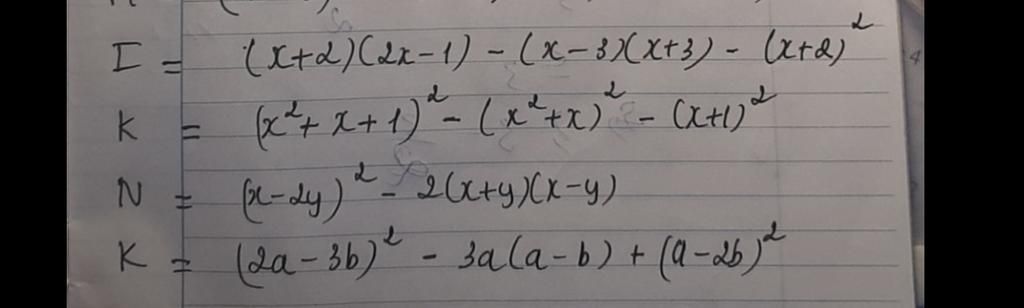 I = (x+2)(2x-1) - (x-3)(x+3) - (x+2)²
K = (x²+x+1)² - (x²+x)² - (x+1)²
N = (x-2y)² - 2(x+y)(x-y)
K = (2a-3b)² - 3a(a-b) + (a-2b)²